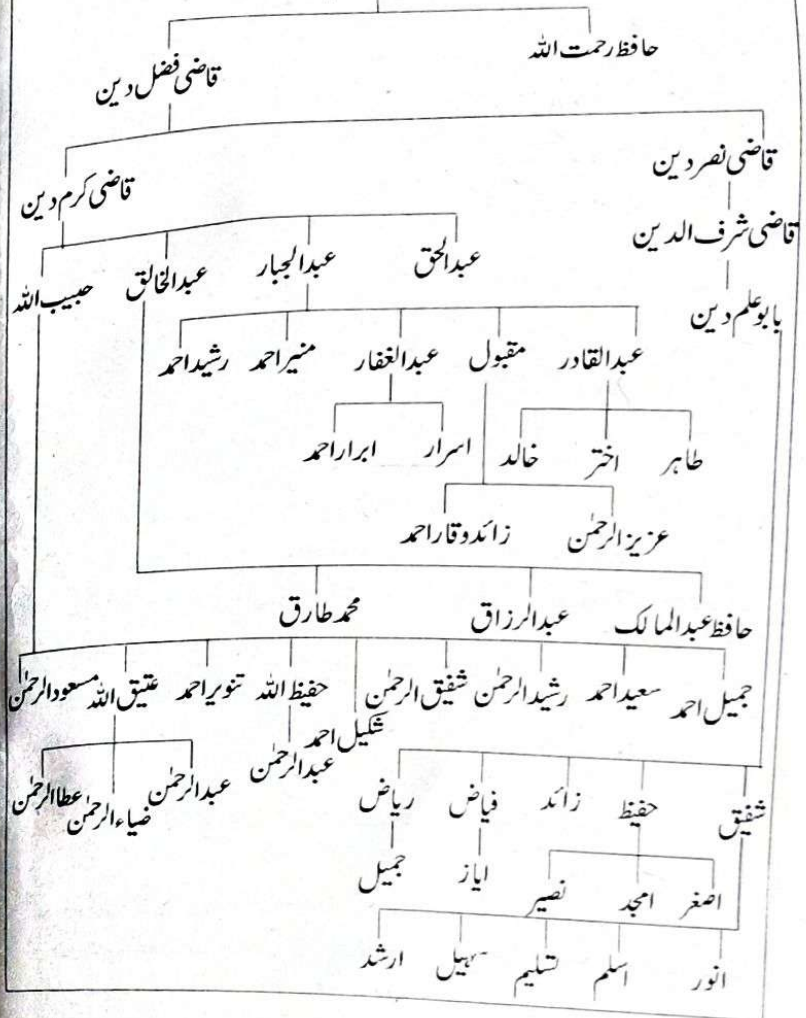 حافظ رحمت اللہ
قاضی فضل دین
قاضی نصر دین
قاضی کرم دین
قاضی شرف الدین
عبدالحق
عبدالجبار
عبدالخالق
حبیب اللہ
بابو علم دین
عبدالقادر
مقبول
عبدالغفار
منیر احمد
رشید احمد
طاہر
اختر
خالد
اسرار
ابرار احمد
عزیز الرحمٰن
زائد وقار احمد
حافظ عبدالمالک
عبدالرزاق
محمد طارق
جمیل احمد
سعید احمد
رشید الرحمٰن
شفیق الرحمٰن
شکیل احمد
حفیظ اللہ
تنویر احمد
عتیق اللہ
مسعود الرحمٰن
عبدالرحمٰن
عبدالرحمٰن
ضیاء الرحمٰن
عطا الرحمٰن
شفیق
حفیظ
زائد
فیاض
ریاض
اصغر
امجد
نصیر
ایاز
جمیل
انور
اسلم
تسلیم
سہیل
ارشد